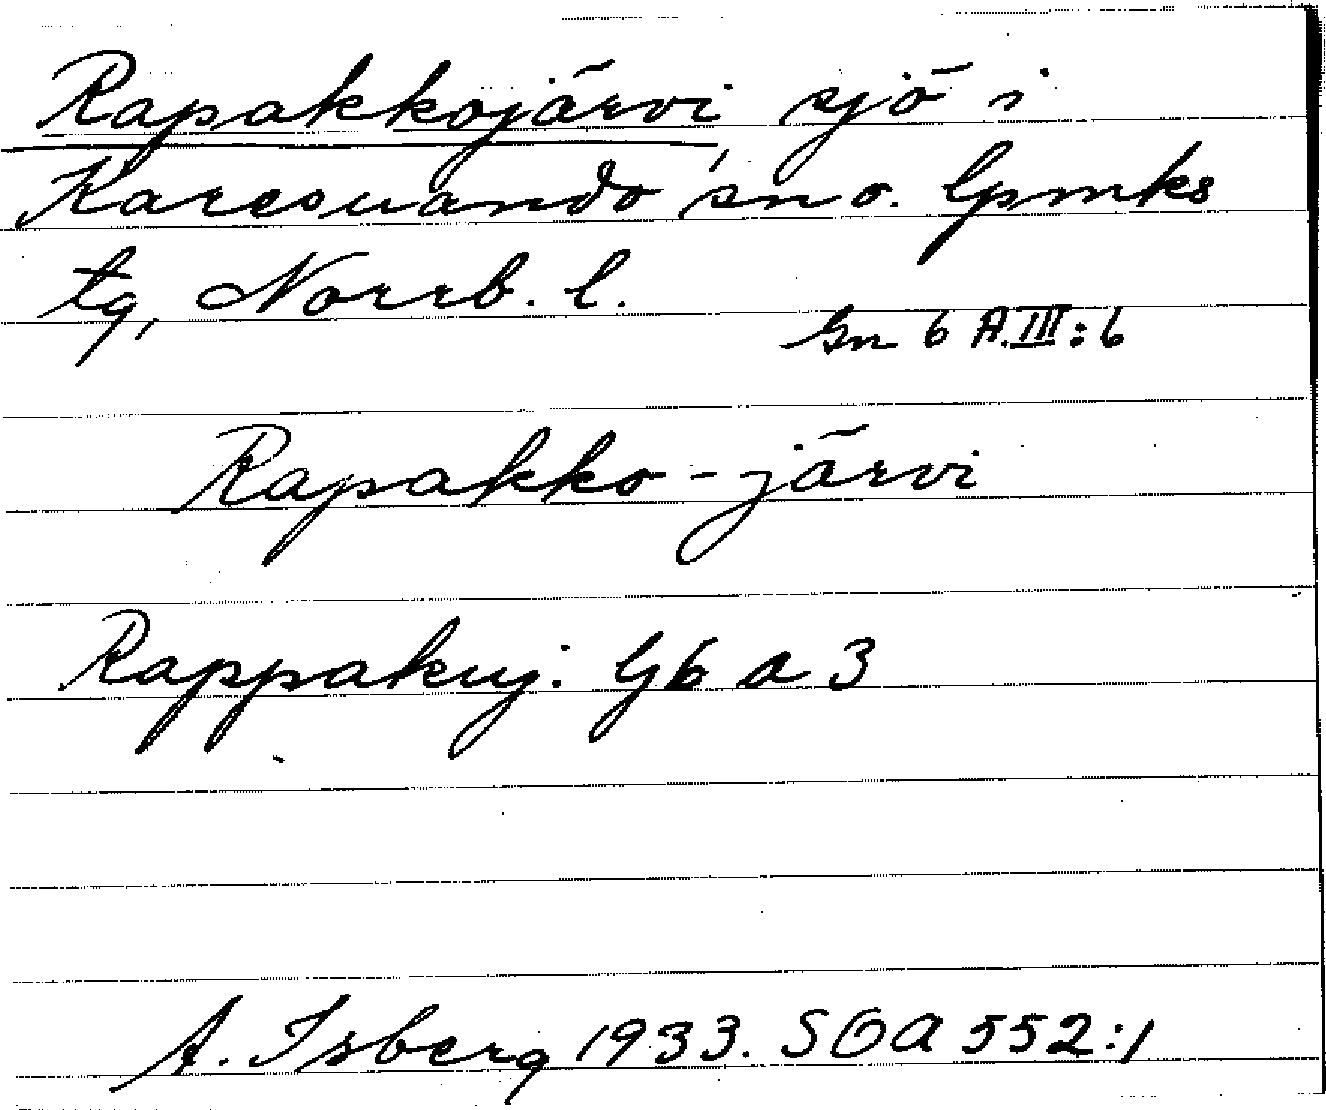 Rapakkojärvi sjö i
Karesuando sn o. lpmks
tg, Norrb. l.
Gn 6 A.III:6
Rapakko-järvi
Rappakuj: G6 a 3
A. Isberg 1933. SOA 552:1